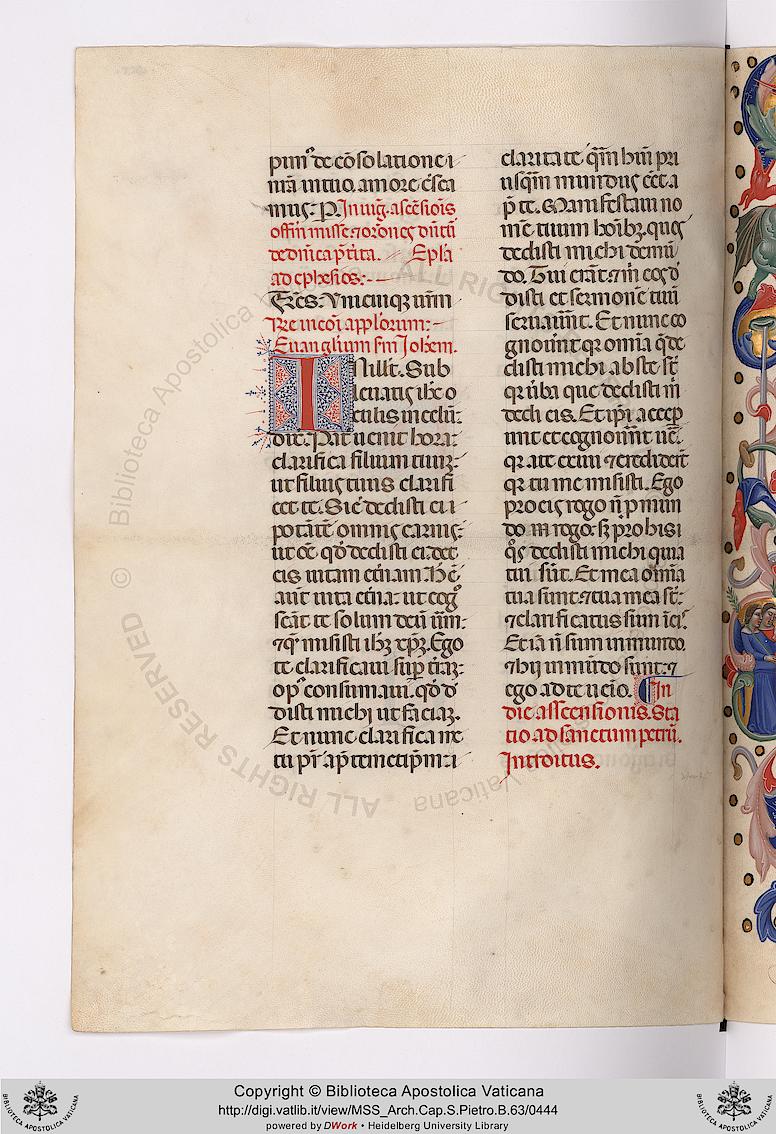 pimꝰ de cōsolatione i
timā mutuo amore cr̄sca
mus. P. In uig. ascēsiois
offm̄ misse ⁊ or̄ones dn̄ti
de dn̄ica p̄t'ita. Ep̄la
ad ephesios.
Fr̄es. Unicuiqꝫ ur̄m
Re in cōi app̄lorum.
Euangl̄ium sm̄ Joh̄em.
I Nill't. Sub
leuatis ih̄c o
culis in celū.
dix̄. Pat' uenit hora.
clarifica filium tuūꝫ.
ut filiꝰ tuus clarifi
cet te. Sic̄ dedisti ei
potātē omnis carnis.
ut oē qd̄ dedisti ei. det
eis uitam et'nam. Hē
aūt uita et'na. ut cog
scāt te solum deū uim.
⁊ qē misisti ih̄ꝫ xp̄ꝫ. Ego
te clarificaui sup̄ t'rāꝫ.
opꝰ consumaui. qd̄ d
disti michi ut faciaꝫ.
Et nunc clarifica me
tu pr̄ ap̄ temetip̄m i
claritate qām hūi pri
usqām mundus eēt a
p̄ te. Manifestaui no
mē tuum hōibꝫ. quos
dedisti michi de mū
do. Tui erāt. ⁊ m̄ eos d
disti et sermonē tuū
seruauer̄t. Et nunc co
gnouūt qr omīa q̄ de
disti michi abs te sūt
qr uba que dedisti m̄
dedi eis. Et ip̄i accep
unt et cognouer̄t uē.
qr a te exiui ⁊ crediderūt
qr tu me misisti. Ego
pro eis rogo. n̄ p mun
do rogo. sꝫ pro his
qos dedisti michi quia
tui sūt. Et mea omīa
tua sunt. ⁊ tua mea sūt.
⁊ clarificatus sum ī eis.
Et iā n̄ sum in mundo.
⁊ hij in mūdo sunt. ⁊
ego ad te uēio. In
die assensionis. Sta
tio ad sanctum petrū.
Introitus.
ALL RIGHTS RESERVED © Biblioteca Apostolica Vaticana
Copyright © Biblioteca Apostolica Vaticana
http://digi.vatlib.it/view/MSS_Arch.Cap.S.Pietro.B.63/0444
powered by DWork • Heidelberg University Library
BIBLIOTECA APOSTOLICA VATICANA
BIBLIOTECA APOSTOLICA VATICANA